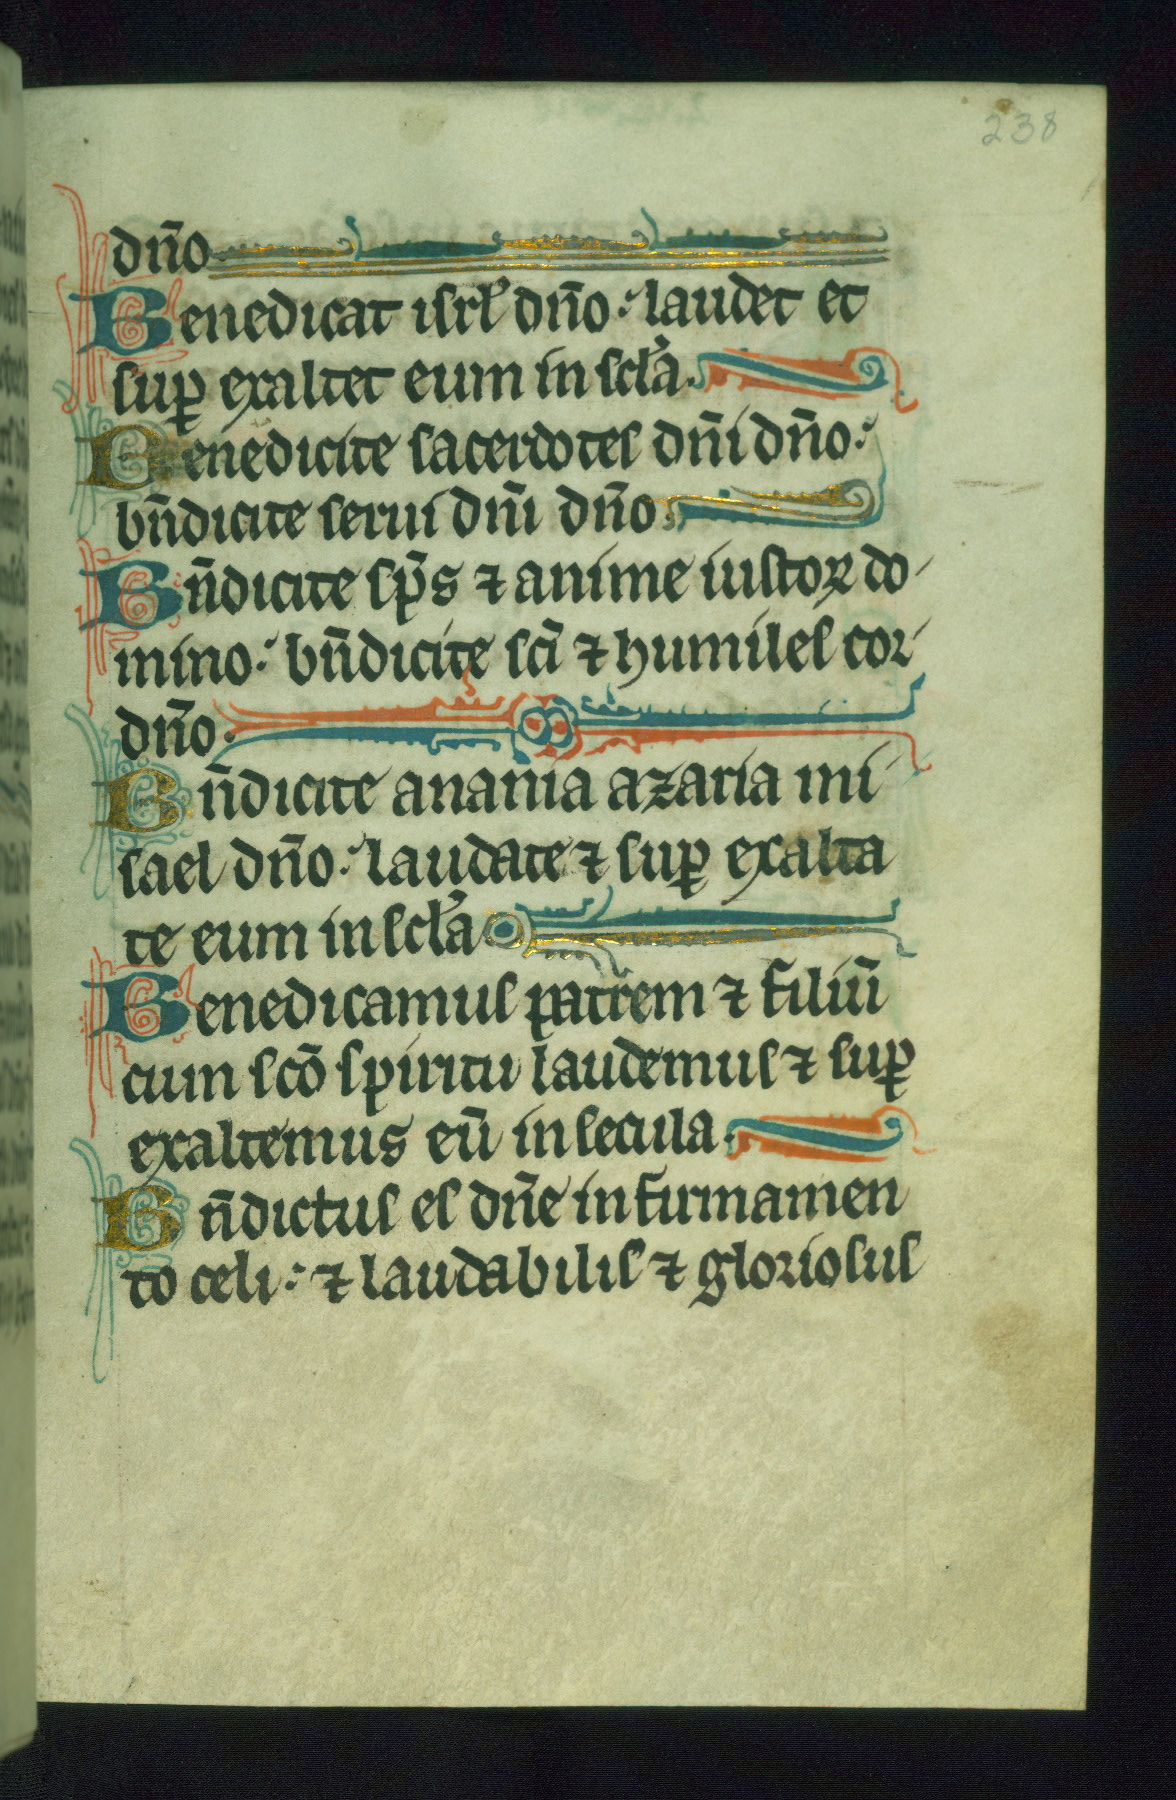 238
dn̄o
Benedicat isrl̓ dn̄o: laudet et
suꝑ exaltet eum in scl̓a.
Benedicite sacerdotes dn̄i dn̄o:
bn̄dicite serui dn̄i dn̄o.
Bn̄dicite sp̄s ⁊ anime iustoꝝ do
mino: bn̄dicite sc̄i ⁊ humiles cor
dn̄o.
Bn̄dicite anania azaria mi
sael dn̄o: laudate ⁊ suꝑ exalta
te eum in scl̓a
Benedicamus patrem ⁊ filiū
cum sc̄o spiritu laudemus ⁊ suꝑ
exaltemus eū in secula.
Bn̄dictus es dn̄e in firmamen
to celi: ⁊ laudabilis ⁊ gloriosus